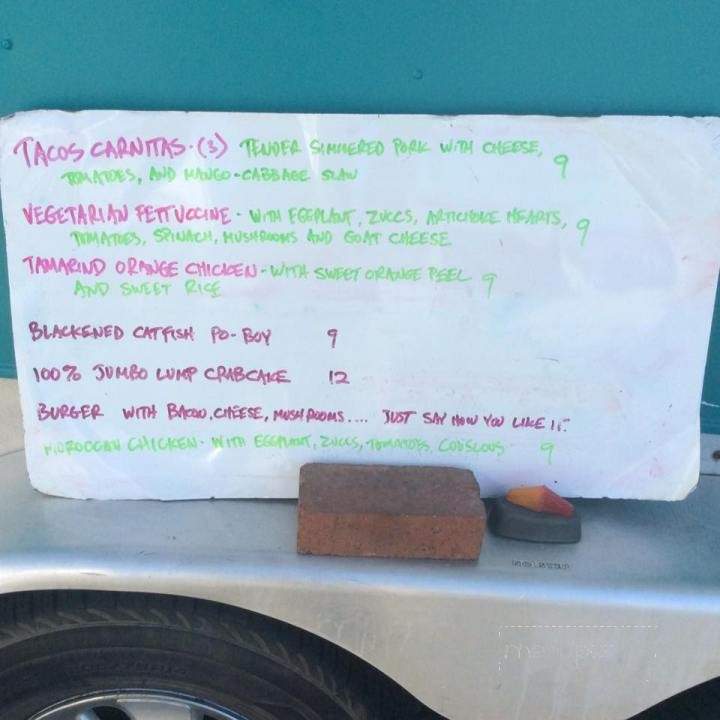 TACOS CARNITAS - (3) TENDER SIMMERED PORK WITH CHEESE, 9
TOMATOES, AND MANGO-CABBAGE SLAW
VEGETARIAN FETTUCCINE - WITH EGGPLANT, ZUCCS, ARTICHOKE HEARTS, 9
TOMATOES, SPINACH, MUSHROOMS AND GOAT CHEESE
TAMARIND ORANGE CHICKEN - WITH SWEET ORANGE PEEL 9
AND SWEET RICE
BLACKENED CATFISH PO-BOY 9
100% JUMBO LUMP CRABCAKE 12
BURGER WITH BACON, CHEESE, MUSHROOMS.... JUST SAY HOW YOU LIKE IT.
MOROCCAN CHICKEN - WITH EGGPLANT, ZUCCS, TOMATOES, COUSCOUS 9